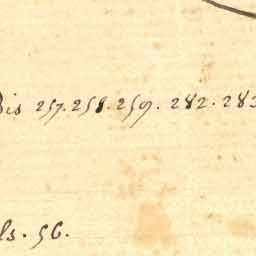 Bis 257. 258. 259. 282. 283
ls. 56.